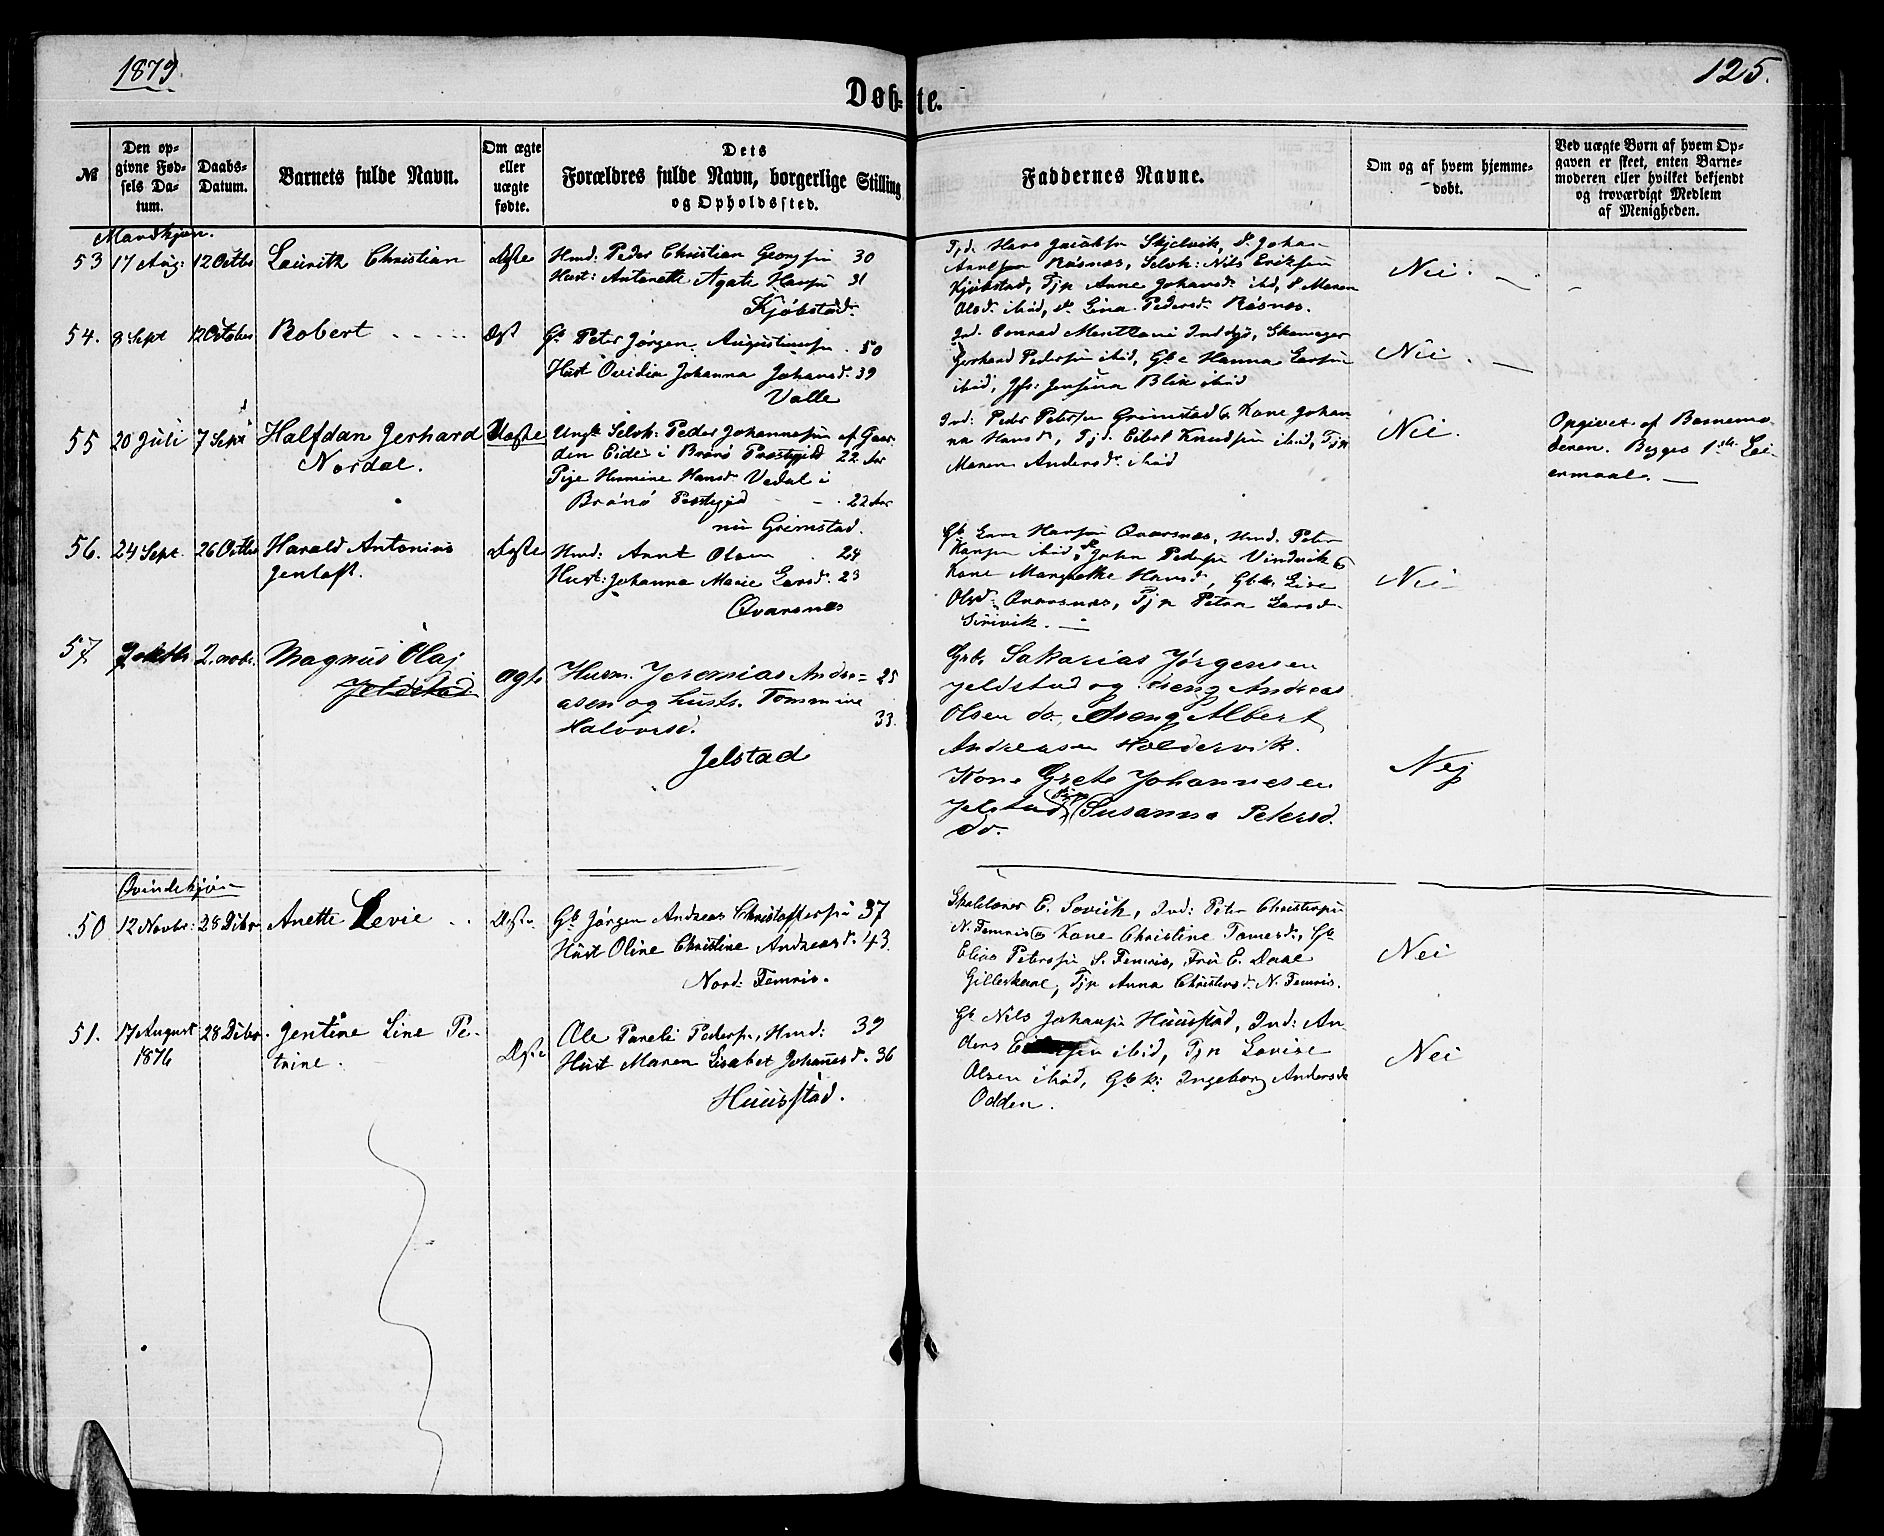 1879.
125.
Døb-te.
№
Den op-
givne Fød-
sels Da-
tum.
Daabs-
Datum.
Barnets fulde Navn.
Om ægte
eller
uægte
fødte.
Dets
Forældres fulde Navn, borgerlige Stilling
og Opholdssted.
Faddernes Navne.
Om og af hvem hjemme-
døbt.
Ved uægte Børn af hvem Op-
gaven er skeet, enten Barne-
moderen eller hvilket bekjendt
og troværdigt Medlem
af Menigheden.
Mandkjøn.
53 17 Aug: 12 Octbr Lauritz Christian Ægte
Hmd: Peder Christian Georgsen 30
Hust: Antonette Agate Hansd 31
Kjøbstad.
Tjd. Hans Jacobsen Skjelvik, d. Johan
Arntsen Røsnes, Selvh: Nils Eriksen
Kjøbstad, Tjp Anne Johansd. ibid, d. Maren
Olsd. ibid, d. Lina Pedersd. Røsnes.
Nei.
54. 9 Sept 12 October Robert Ægt
Gb Peter Jørgen Augustinusen 50
Hust Ovidia Johanna Johansd. 39
Valle
Ind. Conrad Inddyr, Skomager
Gerhard Pedersen ibid, Gbk Hanna Larsen
ibid, Jfr: Jensina Blix ibid
Nei.
55 20 Juli 7 Sept Halfdan Gerhard
Nordal.
Uægte
Ungk. Selvh: Peder Johannesen af Gaar-
den Eide i Brønø Præstegjeld 22 Aar
Pige Hermine Hansd. Vedal i
Brønø Prestegjd 22 Aar
nu Grimstad.
Ind: Peder Petersen Grimstad & Kone Johan
na Hansd, Tjd. Eilert Knudsen ibid, Tjp
Maren Andersd. ibid
Nei.
Opgivet af Barnemo-
deren. Begges 1ste Lei-
ermaal.
56. 24 Sept. 26 Octbr Harald Antonius
Gentoft.
Ægte
Hmd: Arnt Olsen 24
Hust: Johanna Marie Larsd. 23
Qvarsnes
Gb Lars Hansen Qvarsnes, Hmd. Peter
Hansen ibid, d. John Pedersen Vindvik &
Kone Margrethe Hansd, Gbk. Lise
Olsd. Qvarsnes, Tjp Petra Larsd.
Sørvik.
Nei
57 2. novbr. Magnus Olaj
Jeldstad
ægte
Husm. Jeremias Andre= 25
asen og husts. Tommine
Halvorsd. 33.
Jelstad
Grb. Sakarias Jørgensen
Jeldstad og dreng Andreas
Olsen do, dreng Albert
Andreasen Holdervik.
Kone Grete Johannesen
Jelstad, Pige Susanna Petersd.
do.
Nej
Qvindekjøn
50 12 Novbr: 28 Dcbr Anette Levie Ægte.
Gb Jørgen Andreas Christoffersen 37
Hust Oline Christine Andreasd. 43.
Nord: Femris.
Skolelærer E. Sovick, Ind: Peter Christensen
N. Femris & Kone Christine Tomesd., Gb
Elias Petersen S. Femris, Fru E. Daae
Gilleskaal, Tjp Anna Christensd. N. Femris.
Nei
51. 17 August
1876
28 Dcbr. Jentine Line Pe-
trine.
Ægte
Ole Pareli Pedersen, Hmd: 39
Hust Maren Lisabet Johannesd. 36
Huusstad.
Gb Nils Johansen Huusstad, Ind: An-
ders ibid, Tjp Lovise
Olsen ibid, Gbk: Ingeborg Andersd.
Odden.
Nei